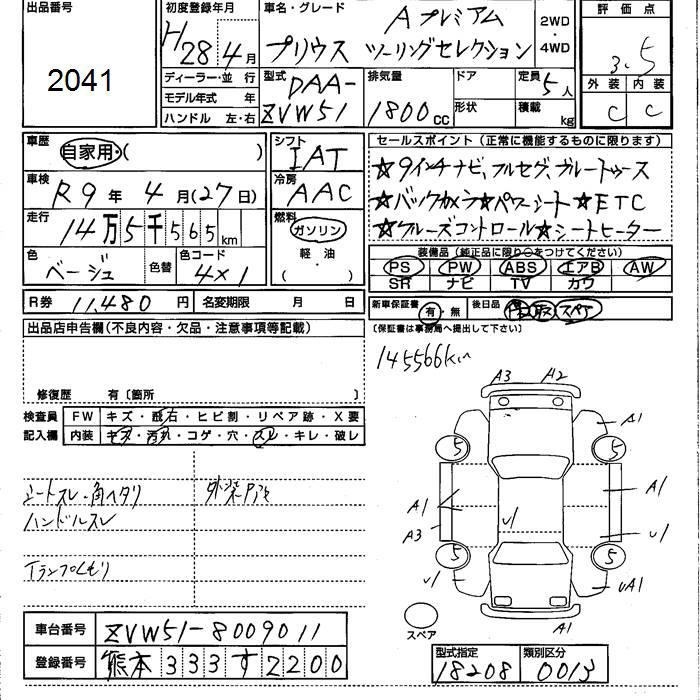 出品番号
2041
初度登録年月
H28年4月
車名・グレード
Aプレミアム
プリウス ツーリングセレクション
2WD
・
4WD
評価点
3.5
外装 内装
C C
ディーラー・並行
モデル年式 年
ハンドル 左・右
型式
DAA-
ZVW51
排気量
1800cc
ドア
形状
定員
5人
積載
kg
車歴
自家用・( )
車検
R9年4月(27日)
走行
14万5千565km
色
ベージュ
色替
色コード
4X1
シフト
IAT
冷房
AAC
燃料
ガソリン
軽・油
( )
セールスポイント(正常に機能するものに限ります)
☆9インチナビ、フルセグ、ブルートゥース
☆バックカメラ☆パワーシート☆ETC
☆クルーズコントロール☆シートヒーター
装備品(純正品に限り○をつけてください)
PS PW ABS エアB AW
SR ナビ TV カワ
R券 11,480円
名変期限 月 日
新車保証書 有・無
後日品 取 スペア
(保証書は事務局へ提出して下さい)
出品店申告欄(不良内容・欠品・注意事項等記載)
修復歴 有〔箇所 〕
検査員
記入欄
FW キズ・飛石・ヒビ割・リペア跡・X要
内装 キズ・汚れ・コゲ・穴・スレ・キレ・破レ
145566km
シートスレ・角ヘタリ
ハンドルスレ
Fランプくもり
A3 A2
A1
5 5
A1 A1
U1
A3 U1
5 5
U1 UA1
A1
スペア
車台番号 ZVW51-8009011
登録番号 熊本333す2200
型式指定 類別区分
18208 0013